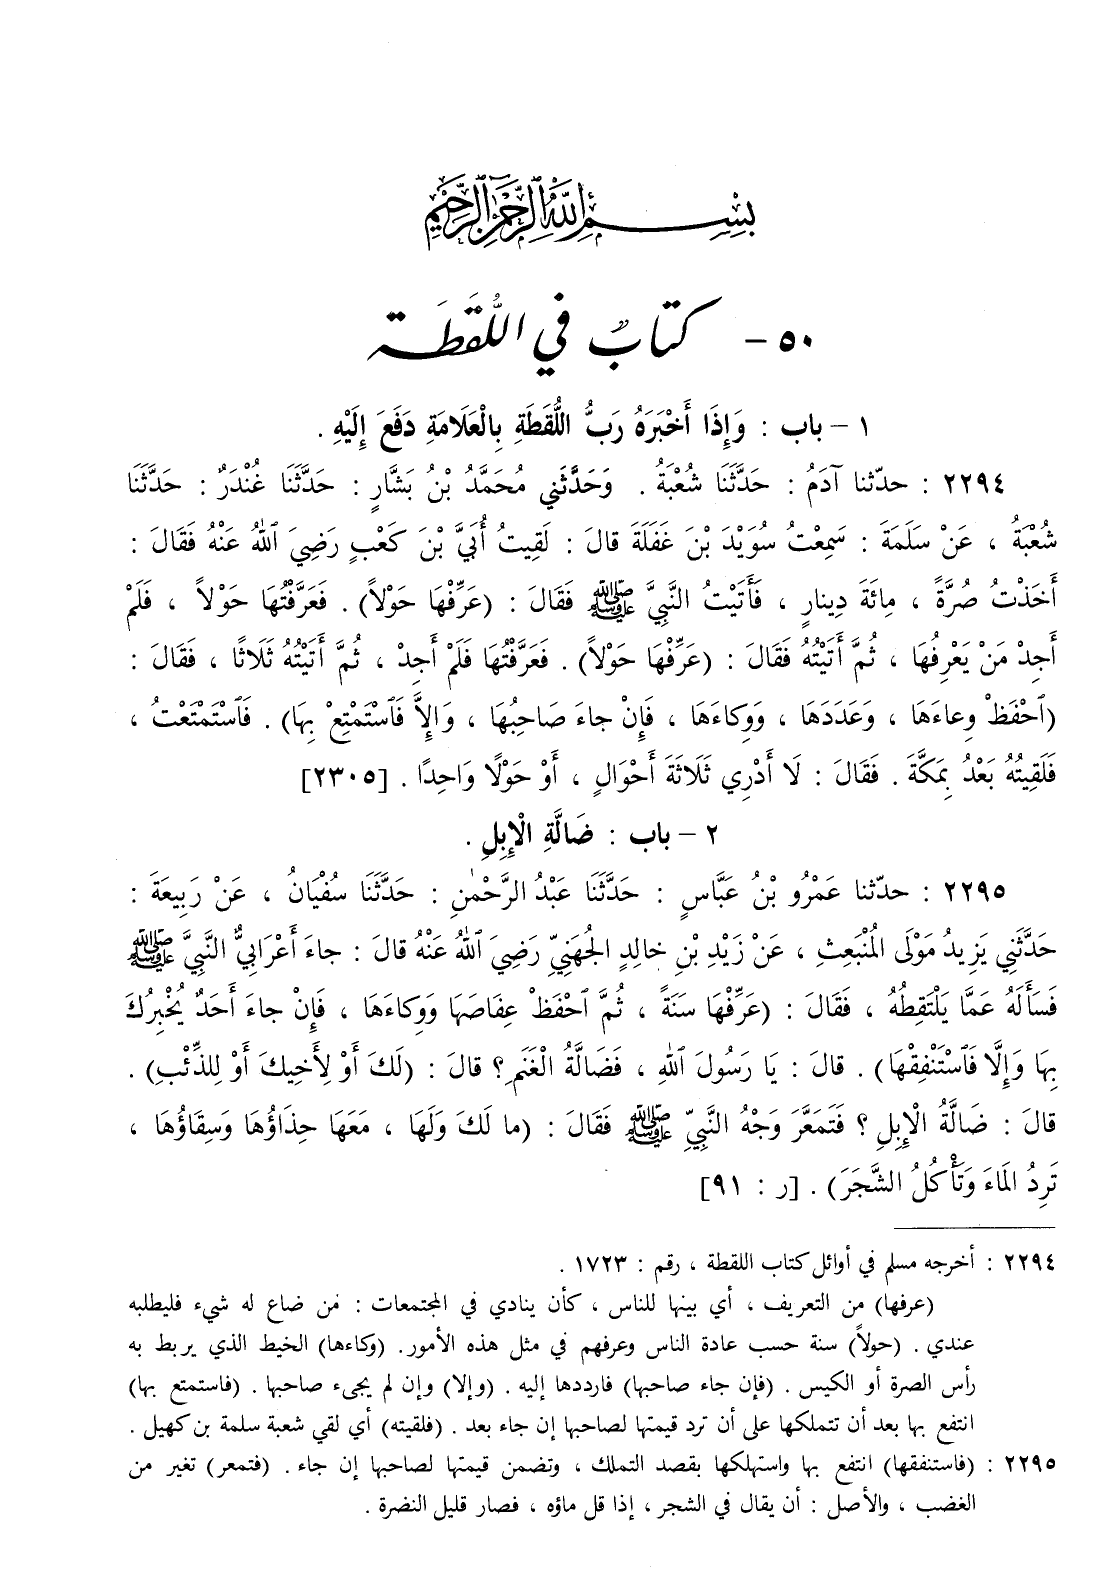 بِسْمِ اللهِ الرَّحْمٰنِ الرَّحِيْمِ
٥٠ - كتابٌ في اللُّقَطَة
١ - باب : وَإِذَا أَخْبَرَهُ رَبُّ اللُّقَطَةِ بِالْعَلَامَةِ دَفَعَ إِلَيْهِ .
٢٢٩٤ : حدّثنا آدَمُ : حَدَّثَنَا شُعْبَةُ . وَحَدَّثَني مُحَمَّدُ بْنُ بَشَّارٍ : حَدَّثَنَا غُنْدَرٌ : حَدَّثَنَا
شُعْبَةُ ، عَنْ سَلَمَةَ : سَمِعْتُ سُوَيْدَ بْنَ غَفَلَةَ قالَ : لَقِيتُ أُبَيَّ بْنَ كَعْبٍ رَضِيَ ٱللهُ عَنْهُ فَقَالَ :
أَخَذْتُ صُرَّةً ، مِائَةَ دِينارٍ ، فَأَتَيْتُ النَّبِيَّ ﷺ فَقَالَ : (عَرِّفْهَا حَوْلاً) . فَعَرَّفْتُهَا حَوْلاً ، فَلَمْ
أَجِدْ مَنْ يَعْرِفُهَا ، ثُمَّ أَتَيْتُهُ فَقَالَ : (عَرِّفْهَا حَوْلاً) . فَعَرَّفْتُهَا فَلَمْ أَجِدْ ، ثُمَّ أَتَيْتُهُ ثَلَاثًا ، فَقَالَ :
(ٱحْفَظْ وِعاءَهَا ، وَعَدَدَهَا ، وَوِكاءَهَا ، فَإِنْ جاءَ صَاحِبُهَا ، وَإِلاَّ فَٱسْتَمْتِعْ بِهَا) . فَٱسْتَمْتَعْتُ ،
فَلَقِيتُهُ بَعْدُ بِمَكَّةَ . فَقَالَ : لَا أَدْرِي ثَلَاثَةَ أَحْوَالٍ ، أَوْ حَوْلًا وَاحِدًا . [٢٣٠٥]
٢ - باب : ضَالَّةِ الْإِبِلِ .
٢٢٩٥ : حدّثنا عَمْرُو بْنُ عَبَّاسٍ : حَدَّثَنَا عَبْدُ الرَّحْمٰنِ : حَدَّثَنَا سُفْيَانُ ، عَنْ رَبِيعَةَ :
حَدَّثَنِي يَزِيدُ مَوْلَى الْمُنْبَعِثِ ، عَنْ زَيْدِ بْنِ خالِدٍ الجُهَنِيِّ رَضِيَ ٱللهُ عَنْهُ قالَ : جاءَ أَعْرَابِيٌّ النَّبِيَّ ﷺ
فَسَأَلَهُ عَمَّا يَلْتَقِطُهُ ، فَقَالَ : (عَرِّفْهَا سَنَةً ، ثُمَّ ٱحْفَظْ عِفَاصَهَا وَوِكاءَهَا ، فَإِنْ جاءَ أَحَدٌ يُخْبِرُكَ
بِهَا وَإِلَّا فَٱسْتَنْفِقْهَا) . قالَ : يَا رَسُولَ ٱللهِ ، فَضَالَّةُ الْغَنَمِ ؟ قالَ : (لَكَ أَوْ لِأَخِيكَ أَوْ لِلذِّئْبِ) .
قالَ : ضَالَّةُ الْإِبِلِ ؟ فَتَمَعَّرَ وَجْهُ النَّبِيِّ ﷺ فَقَالَ : (ما لَكَ وَلَهَا ، مَعَهَا حِذَاؤُهَا وَسِقَاؤُهَا ،
تَرِدُ المَاءَ وَتَأْكُلُ الشَّجَرَ) . [ر : ٩١]
٢٢٩٤ : أخرجه مسلم في أوائل كتاب اللقطة ، رقم : ١٧٢٣ .
(عرفها) من التعريف ، أي بينها للناس ، كأن ينادي في المجتمعات : من ضاع له شيء فليطلبه
عندي . (حولاً) سنة حسب عادة الناس وعرفهم في مثل هذه الأمور. (وكاءها) الخيط الذي يربط به
رأس الصرة أو الكيس . (فإن جاء صاحبها) فارددها إليه . (وإلا) وإن لم يجىء صاحبها . (فاستمتع بها)
انتفع بها بعد أن تتملكها على أن ترد قيمتها لصاحبها إن جاء بعد . (فلقيته) أي لقي شعبة سلمة بن كهيل .
٢٢٩٥ : (فاستنفقها) انتفع بها واستهلكها بقصد التملك ، وتضمن قيمتها لصاحبها إن جاء . (فتمعر) تغير من
الغضب ، والأصل : أن يقال في الشجر ، إذا قل ماؤه ، فصار قليل النضرة .